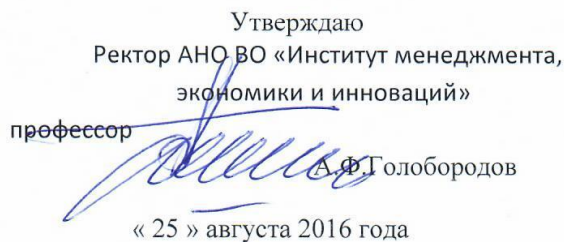 Утверждаю
Ректор АНО ВО «Институт менеджмента,
экономики и инноваций»
профессор
А.Ф.Голобородов
« 25 » августа 2016 года